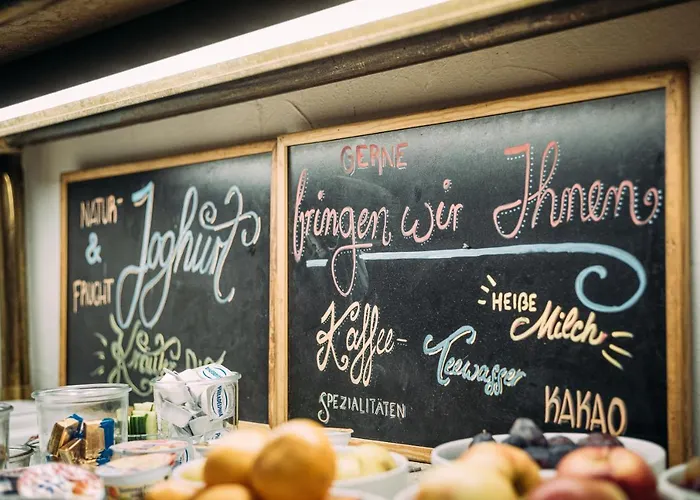 NATUR-
& Joghurt
FRUCHT
Kräuter DIP
GERNE
bringen wir Ihnen
Kaffee-
SPEZIALITÄTEN
Teewasser
HEIßE
Milch
KAKAO